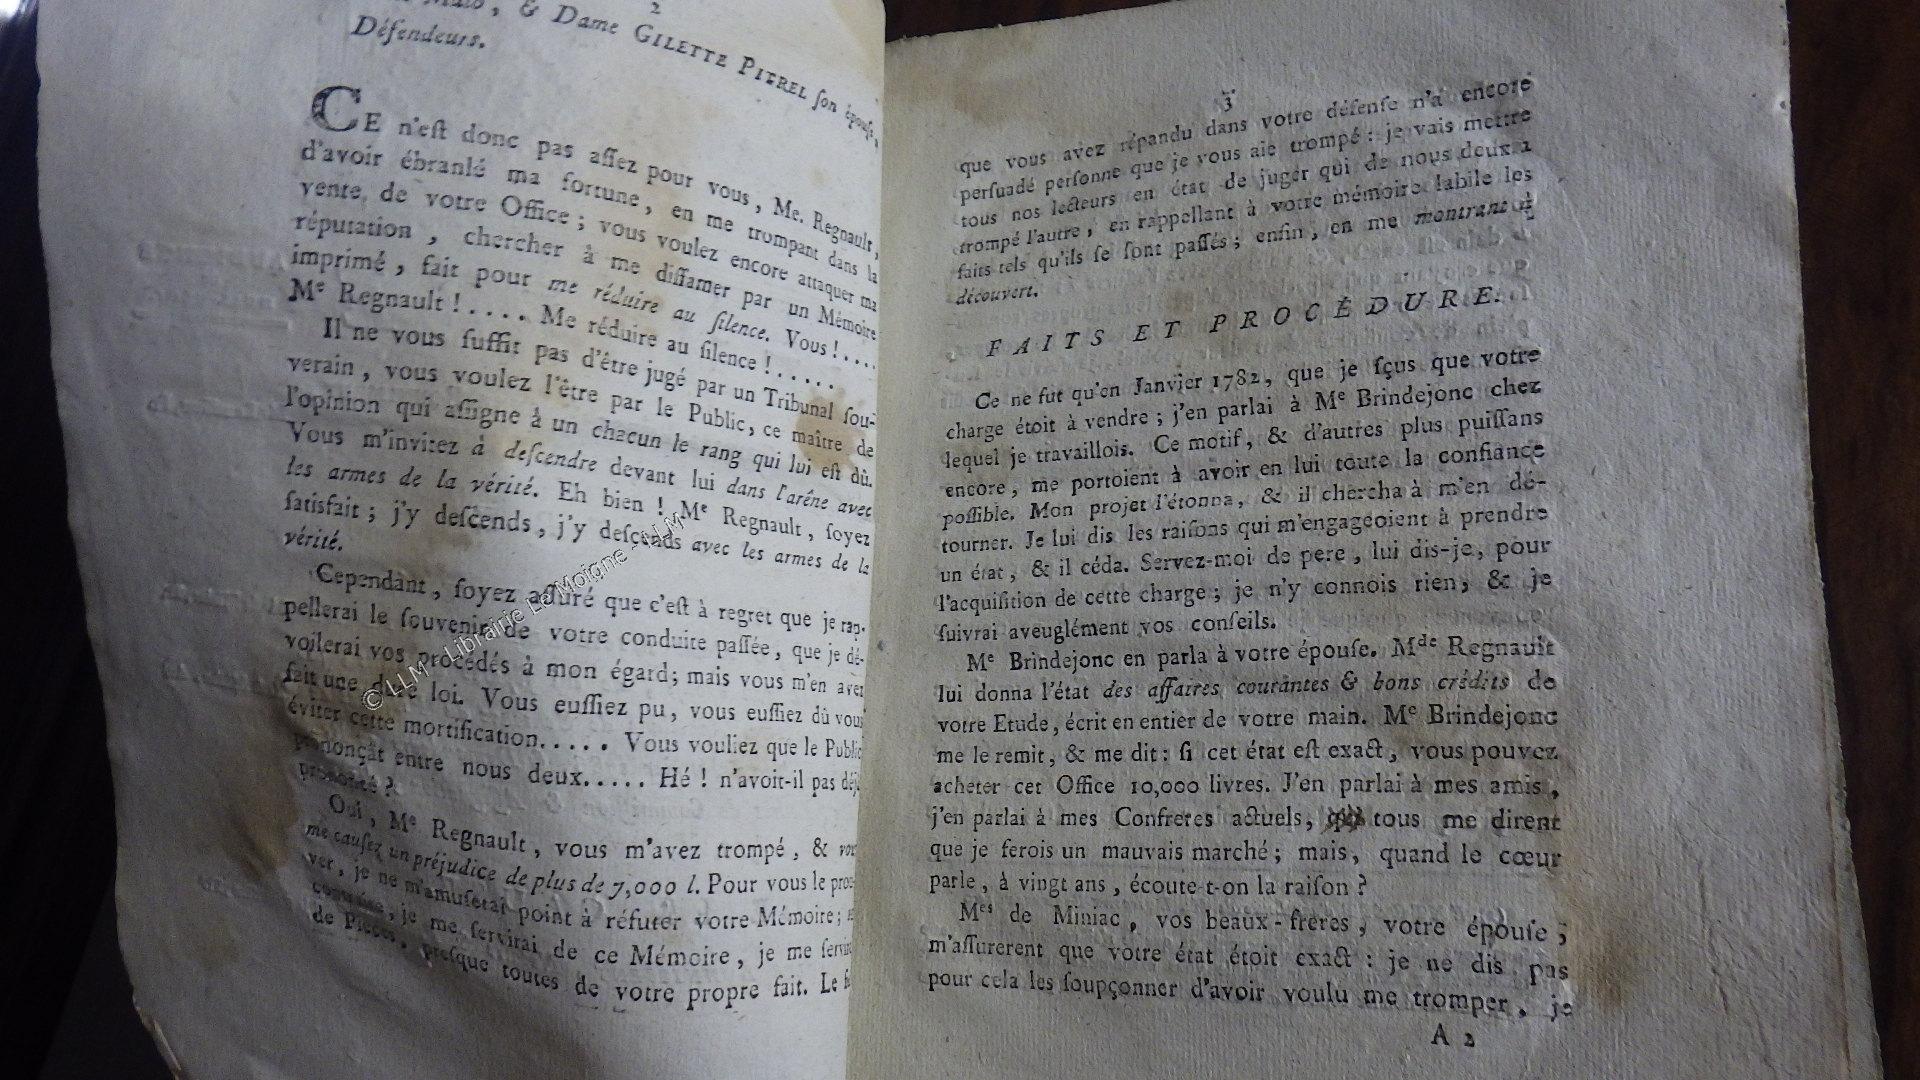 2
& Dame GILETTE PITREL ſon épouſe,
Défendeurs.
CE n'eſt donc pas aſſez pour vous, Me. Regnault,
d'avoir ébranlé ma fortune, en me trompant dans la
vente de votre Office ; vous voulez encore attaquer ma
réputation, chercher à me diffamer par un Mémoire
imprimé, fait pour me réduire au ſilence. Vous !....
Me Regnault !.... Me réduire au ſilence !.....
Il ne vous ſuffit pas d'être jugé par un Tribunal ſou-
verain, vous voulez l'être par le Public, ce maître de
l'opinion qui aſſigne à un chacun le rang qui lui eſt dû.
Vous m'invitez à deſcendre devant lui dans l'arêne avec
les armes de la vérité. Eh bien ! Me Regnault, ſoyez
ſatisfait ; j'y deſcends, j'y deſcends avec les armes de la
vérité.
Cependant, ſoyez aſſuré que c'eſt à regret que je rap-
pellerai le ſouvenir de votre conduite paſſée, que je dé-
voilerai vos procédés à mon égard ; mais vous m'en avez
fait une dure loi. Vous euſſiez pu, vous euſſiez dû vous
éviter cette mortification..... Vous vouliez que le Public
prononçât entre nous deux..... Hé ! n'avoit-il pas déjà
prononcé ?
Oui, Me Regnault, vous m'avez trompé, & vous
me cauſez un préjudice de plus de 7,000 l. Pour vous le prou-
ver, je ne m'amuſerai point à réfuter votre Mémoire ;
je me ſervirai de ce Mémoire, je me ſervirai
de Pieces, preſque toutes de votre propre fait. Le
© LLM - Librairie Le Moigne - LLM
3
que vous avez répandu dans votre défenſe n'a encore
perſuadé perſonne que je vous aie trompé : je vais mettre
tous nos lecteurs en état de juger qui de nous deux a
trompé l'autre, en rappellant à votre mémoire labile les
faits tels qu'ils ſe ſont paſſés ; enfin, en me montrant à
découvert.
FAITS ET PROCÉDURE.
Ce ne fut qu'en Janvier 1782, que je ſçus que votre
charge étoit à vendre ; j'en parlai à Me Brindejonc chez
lequel je travaillois. Ce motif, & d'autres plus puiſſans
encore, me portoient à avoir en lui toute la confiance
poſſible. Mon projet l'étonna, & il chercha à m'en dé-
tourner. Je lui dis les raiſons qui m'engageoient à prendre
un état, & il céda. Servez-moi de pere, lui dis-je, pour
l'acquiſition de cette charge ; je n'y connois rien, & je
ſuivrai aveuglément vos conſeils.
Me Brindejonc en parla à votre épouſe. Mde Regnault
lui donna l'état des affaires courantes & bons crédits de
votre Etude, écrit en entier de votre main. Me Brindejonc
me le remit, & me dit : ſi cet état eſt exact, vous pouvez
acheter cet Office 10,000 livres. J'en parlai à mes amis,
j'en parlai à mes Confreres actuels, tous me dirent
que je ferois un mauvais marché ; mais, quand le cœur
parle, à vingt ans, écoute-t-on la raiſon ?
Mes de Miniac, vos beaux-freres, votre épouſe,
m'aſſurerent que votre état étoit exact : je ne dis pas
pour cela les ſoupçonner d'avoir voulu me tromper, je
A 2